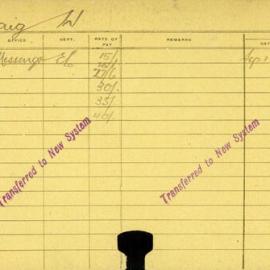 aig W
OFFICE DEPT. RATE OF PAY REMARKS
Messenger 15/-
30/-
35/-
Transferred to New System
Transferred to New System